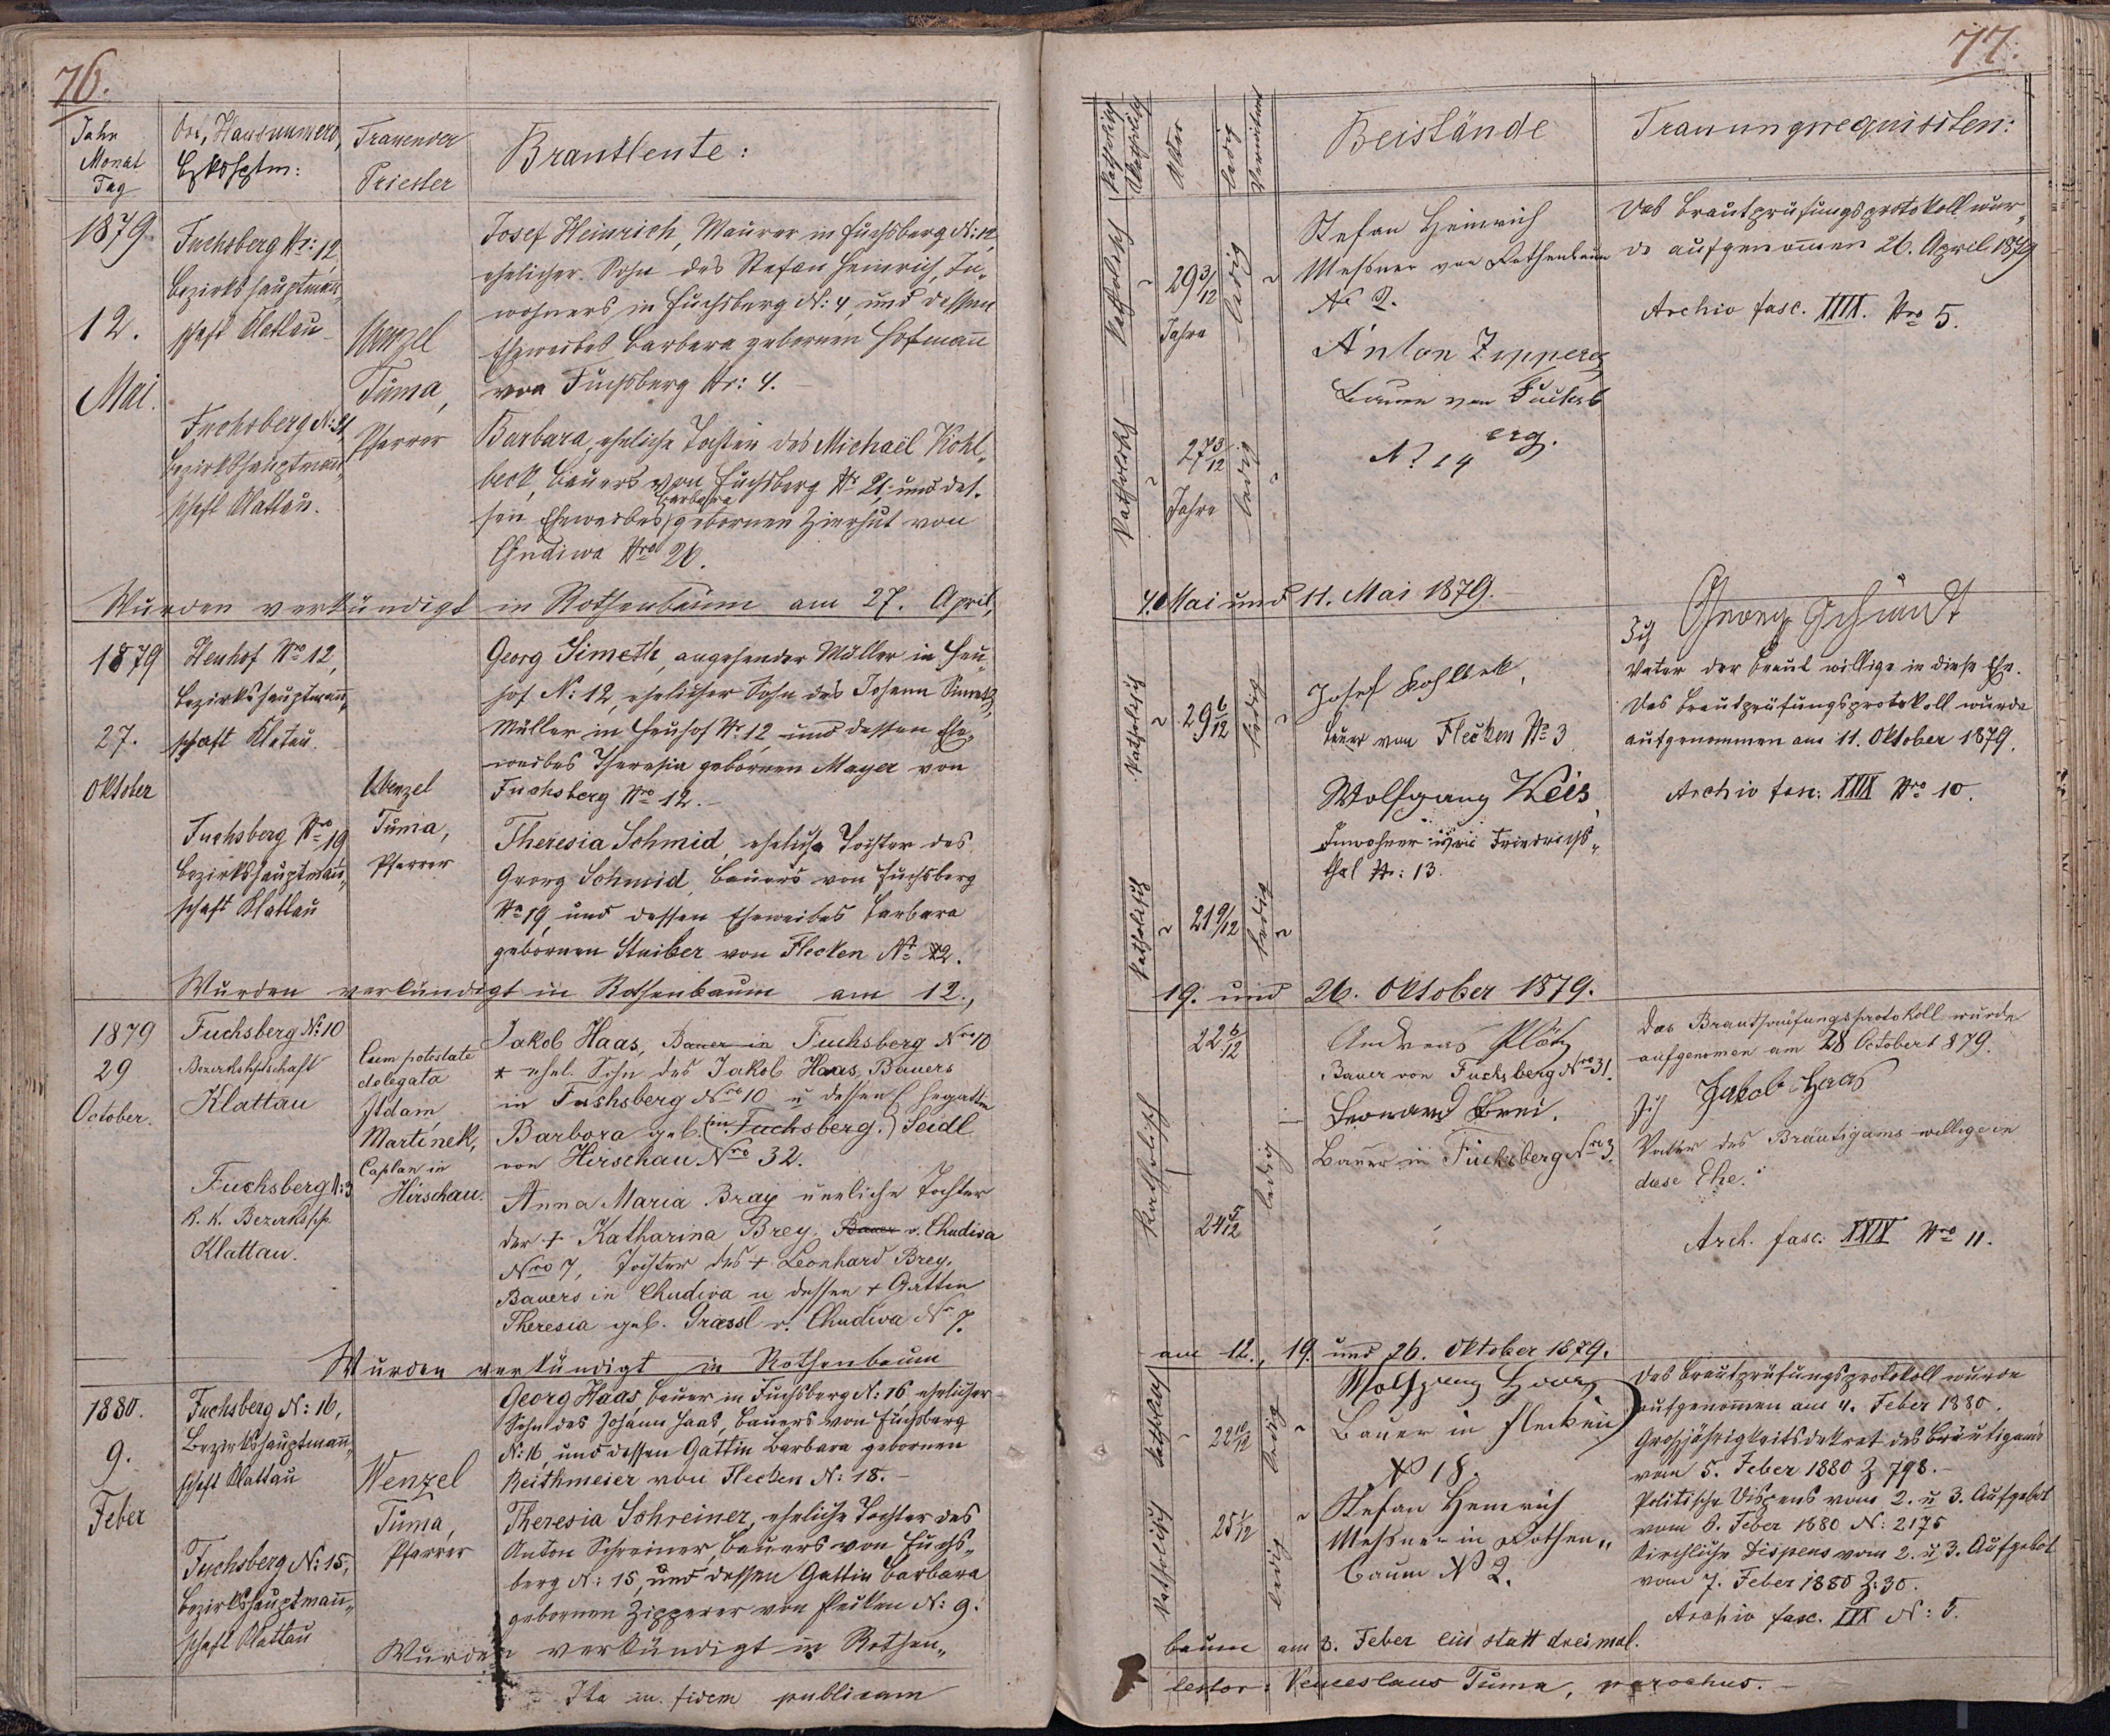 76.
Jahr
Monat
Tag
Ort, Hausnumero,
Bzkshptm:
Trauender
Priester
Brautleute:
1879.
12.
Mai.
Fuchsberg Nr: 12,
Bezirkshauptmann„
schaft Klattau
Fuchsberg N: 21,
Bezirkshauptmann„
schaft Klattau.
Wenzel
Tuma,
Pfarrer
Josef Heinrich, Maurer in Fuchsberg N: 12,
ehelicher Sohn des Stefan Heinrich, In„
wohners in Fuchsberg N: 4, und dessen
Eheweibes Barbara gebornen Hofmann
von Fuchsberg Nr: 4.
Barbara, eheliche Tochter des Michael Kohl„
beck, Bauers von Fuchsberg Nr 21, und des„
Barbara
sen Eheweibes gebornen Zierhut von
Chudiwa Nro 26.
Wurden verkündigt in Rothenbaum am 27. April,
1879
27.
Oktober
Heuhof Nro 12,
Bezirkshauptmann„
schaft Klatau.
Fuchsberg Nro 19
Bezirkshauptmann„
schaft Klattau
Wenzel
Tuma,
Pfarrer
Georg Simeth, angehender Müller in Heu„
hof N: 12, ehelicher Sohn des Johann Simeth,
Müller in Heuhof Nr. 12 und dessen Ehe„
weibes Theresia gebornen Mayer von
Fuchsberg Nro 12.
Theresia Schmid, eheliche Tochter des
Georg Schmid, Bauers von Fuchsberg
Nr 19, und dessen Eheweibes Barbara
gebornen Staiber von Flecken No 12.
Wurden verkündigt in Rothenbaum am 12.,
1879
29
October.
Fuchsberg No 10
Bezirkshptschaft
Klattau
Fuchsberg N: 3
k. k. Bezirkshp.
Klattau.
Cum potestate
delegata
Adam
Martinek,
Caplan in
Hirschau.
Jakob Haas, Bauer in Fuchsberg Nro 10
* ehel. Sohn des Jakob Haas, Bauers
in Fuchsberg Nro 10 u dessen Ehegattin
Barbora geb. (in Fuchsberg.) Seidl
von Hirschau Nro 32.
Anna Maria Bray unehliche Tochter
der + Katharina Brey, Bauer v. Chudiva
Nro 7, Tochter des + Leonhard Brey,
Bauers in Chudiva u dessen + Gattin
Theresia geb. Graessl v. Chudiva Nr 7.
Wurden verkündigt in Rothenbaum
1880.
9.
Feber
Fuchsberg N: 16,
Bezirkshauptmann„
schaft Klattau
Fuchsberg N: 15,
Bezirkshauptmann„
schaft Klattau
Wenzel
Tuma,
Pfarrer
Georg Haas, Bauer in Fuchsberg N: 16, ehelicher
Sohn des Johann Haas, Bauers von Fuchsberg
N: 16, und dessen Gattin Barbara gebornen
Reithmeier von Flecken N: 18.
Theresia Schreiner, eheliche Tochter des
Anton Schreiner, Bauers von Fuchs„
berg N: 15, und dessen Gattin Barbara
gebornen Zipperer von Flecken N: 9.
Wurden verkündigt in Rothen„
Ita in fidem publicam
77.
Katholisch
Akatholisch
Alter
ledig
Verwitwet
Beistände
Trauungsrequisiten:
Katholisch
29 3/12
Jahre
ledig
Katholisch
27 3/12
Jahre
ledig
Stefan Heinrich
Messner von Rothenbaum
No 2.
Anton Zipperer
Bauer von Fuchsb
erg.
No 14
Das Brautprüfungsprotokoll wur„
de aufgenommen 26. April 1879
Archiv fasc. XXIX. Nro 5.
4. Mai und 11. Mai 1879.
Katholisch
29 6/12
ledig
Katholisch
21 9/12
ledig
Josef Kohlbek,
Bauer von Flecken No 3
Wolfgang Weis,
Inwohner von Friedrichs„
thal Nr: 13.
Ich Georg Schmidt
Vater der Braut willige in diese Ehe.
Das Brautprüfungsprotokoll wurde
aufgenommen am 11. Oktober 1879.
Archiv fasc: XXIX Nro 10.
19. und 26. Oktober 1879.
Katholisch
22 6/12
24 5/12
ledig
Andreas Plötz
Bauer von Fuchsberg Nro 31.
Leonard Brei.
Bauer in Fuchsberg Nro 3.
Das Brautprüfungsprotokoll wurde
aufgenomen am 28 October 1879.
Ich Jakob Haas
Vater des Bräutigams willige in
diese Ehe.
Arch. fasc: XXIX Nro 11.
am 12., 19. und 26. Oktober 1879.
Katholisch
22 10/12
ledig
Katholisch
25 1/12
ledig
Wolfgang Haas
Bauer in Flecken
No 18.
Stefan Heinrich
Messner in Rothen„
baum No 2.
Das Brautprüfungsprotokoll wurde
aufgenommen am 4. Feber 1880.
Großjährigkeitsdekret des Bräutigams
vom 5. Feber 1880 Z 798.
Politische Dispens vom 2. u 3. Aufgebot
vom 6. Feber 1880 N: 2175
Kirchliche Dispens vom 2. u 3. Aufgebot
vom 7. Feber 1880 Z: 30.
Archiv fasc. XXX N: 5.
baum am 8. Feber ein statt dreimal.
testor: Venceslaus Tuma, parochus.